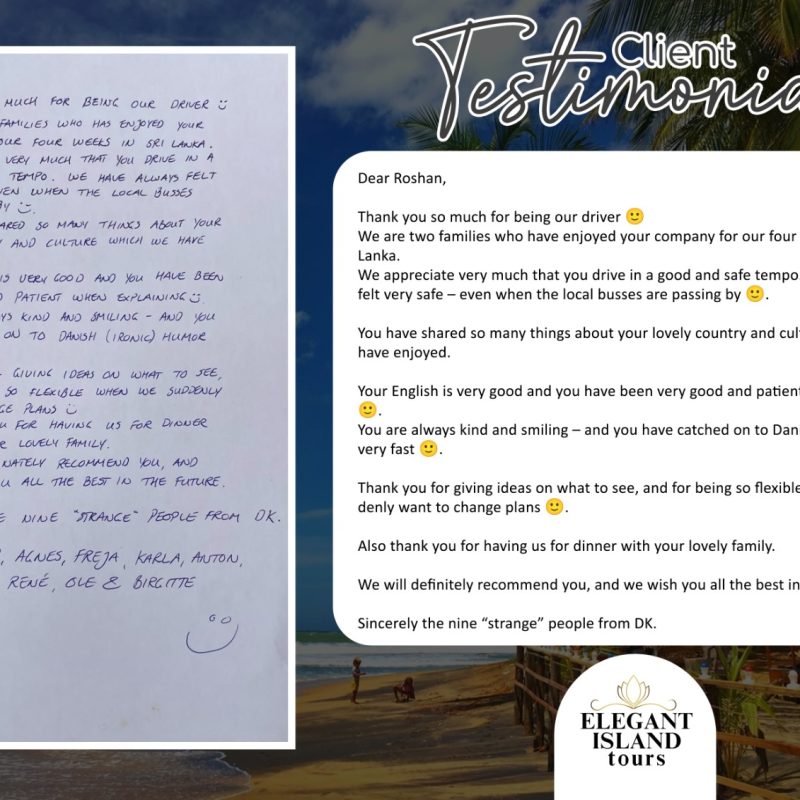 MUCH FOR BEING OUR DRIVER
FAMILIES WHO HAS ENJOYED YOUR
OUR FOUR WEEKS IN SRI LANKA.
VERY MUCH THAT YOU DRIVE IN A
TEMPO. WE HAVE ALWAYS FELT
EN WHEN THE LOCAL BUSSES
BY
ARED SO MANY THINGS ABOUT YOUR
Y AND CULTURE WHICH WE HAVE
IS VERY GOOD AND YOU HAVE BEEN
D PATIENT WHEN EXPLAINING
YS KIND AND SMILING - AND YOU
ON TO DANISH (IRONIC) HUMOR
GIVING IDEAS ON WHAT TO SEE,
SO FLEXIBLE WHEN WE SUDDENLY
GE PLANS
U FOR HAVING US FOR DINNER
R LOVELY FAMILY.
NATELY RECOMMEND YOU, AND
U ALL THE BEST IN THE FUTURE.
E NINE "STRANGE" PEOPLE FROM DK.
, AGNES, FREJA, KARLA, ANTON,
RENÉ, OLE & BIRGITTE
Client
Testimonia
Dear Roshan,
Thank you so much for being our driver 🙂
We are two families who have enjoyed your company for our four
Lanka.
We appreciate very much that you drive in a good and safe tempo
felt very safe – even when the local busses are passing by 🙂.
You have shared so many things about your lovely country and cul
have enjoyed.
Your English is very good and you have been very good and patient
🙂.
You are always kind and smiling – and you have catched on to Dani
very fast 🙂.
Thank you for giving ideas on what to see, and for being so flexible
denly want to change plans 🙂.
Also thank you for having us for dinner with your lovely family.
We will definitely recommend you, and we wish you all the best in
Sincerely the nine “strange” people from DK.
ELEGANT
ISLAND
tours